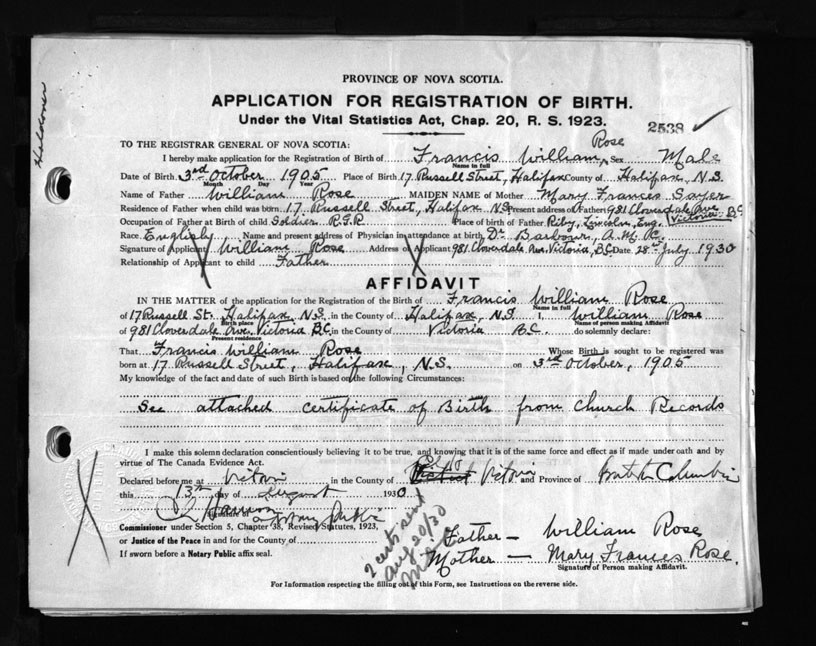 PROVINCE OF NOVA SCOTIA.
APPLICATION FOR REGISTRATION OF BIRTH.
Under the Vital Statistics Act, Chap. 20, R. S. 1923.
2538
TO THE REGISTRAR GENERAL OF NOVA SCOTIA:
I hereby make application for the Registration of Birth of Francis William Rose Sex Male
Name in full
Date of Birth 3rd October 1905 Place of Birth 17 Russell Street, Halifax County of Halifax, N.S.
Month Day Year
Name of Father William Rose MAIDEN NAME of Mother Mary Frances Sayer
Residence of Father when child was born 17 Russell Street, Halifax N.S. Present address of Father 981 Cloverdale Ave Victoria B.C.
Occupation of Father at Birth of Child Soldier R.G.R. Place of birth of Father Riby, Lincoln, Eng.
Race English Name and present address of Physician in attendance at birth Dr. Barbour, A.M.R.
Signature of Applicant William Rose Address of Applicant 981 Cloverdale Ave. Victoria, B.C. Date 28th July 1930
Relationship of Applicant to child Father
AFFIDAVIT
IN THE MATTER of the application for the Registration of the Birth of Francis William Rose
Name in full
of 17 Russell St. Halifax N.S. in the County of Halifax, N.S. I, William Rose
Birth place Name of person making Affidavit
of 981 Cloverdale Ave. Victoria B.C. in the County of Victoria B.C. do solemnly declare:
Present residence
That Francis William Rose Whose Birth is sought to be registered was
born at 17 Russell Street, Halifax, N.S. on 3rd October, 1905
My knowledge of the fact and date of such Birth is based on the following Circumstances:
See attached certificate of Birth from Church Records
I make this solemn declaration conscientiously believing it to be true, and knowing that it is of the same force and effect as if made under oath and by
virtue of The Canada Evidence Act.
Declared before me at Victoria in the County of Victoria and Province of British Columbia
this 13th day of August 1930
Signature of
Commissioner under Section 5, Chapter 38, Revised Statutes, 1923,
or Justice of the Peace in and for the County of
If sworn before a Notary Public affix seal.
2 certs sent
Aug 20/30
Father — William Rose
Mother — Mary Frances Rose.
Signature of Person making Affidavit.
For Information respecting the filling out of this Form, see Instructions on the reverse side.